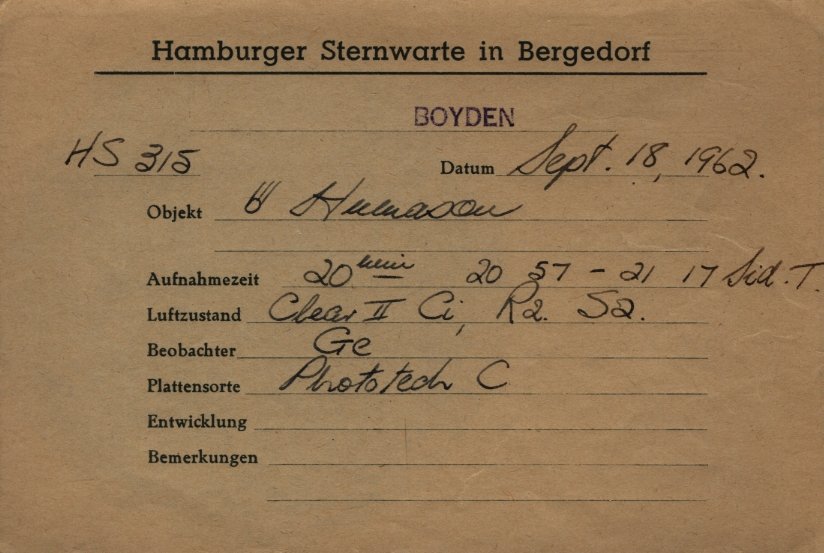 Hamburger Sternwarte in Bergedorf
BOYDEN
HS 315
Datum Sept. 18, 1962.
Objekt Humason
Aufnahmezeit 20 min 20 57 - 21 17 Sid. T.
Luftzustand Clear II Ci, R2. S2.
Beobachter Ge
Plattensorte Phototech C
Entwicklung
Bemerkungen